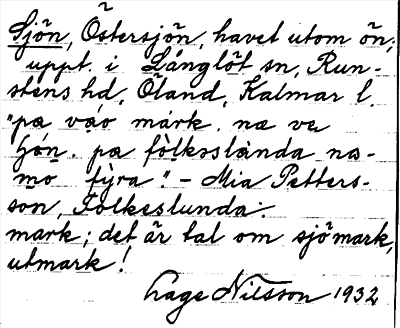 Sjön, Östersjön, havet utom ön,
uppt. i Långlöt sn, Run-
stens hd, Öland, Kalmar l.
"pa våo mark. na va
jön. pa fòlkəslànda na-
mo fỳra." – Mia Petters-
son, Folkeslunda.
mark; det är tal om sjömark,
utmark!
Lage Nilsson 1932